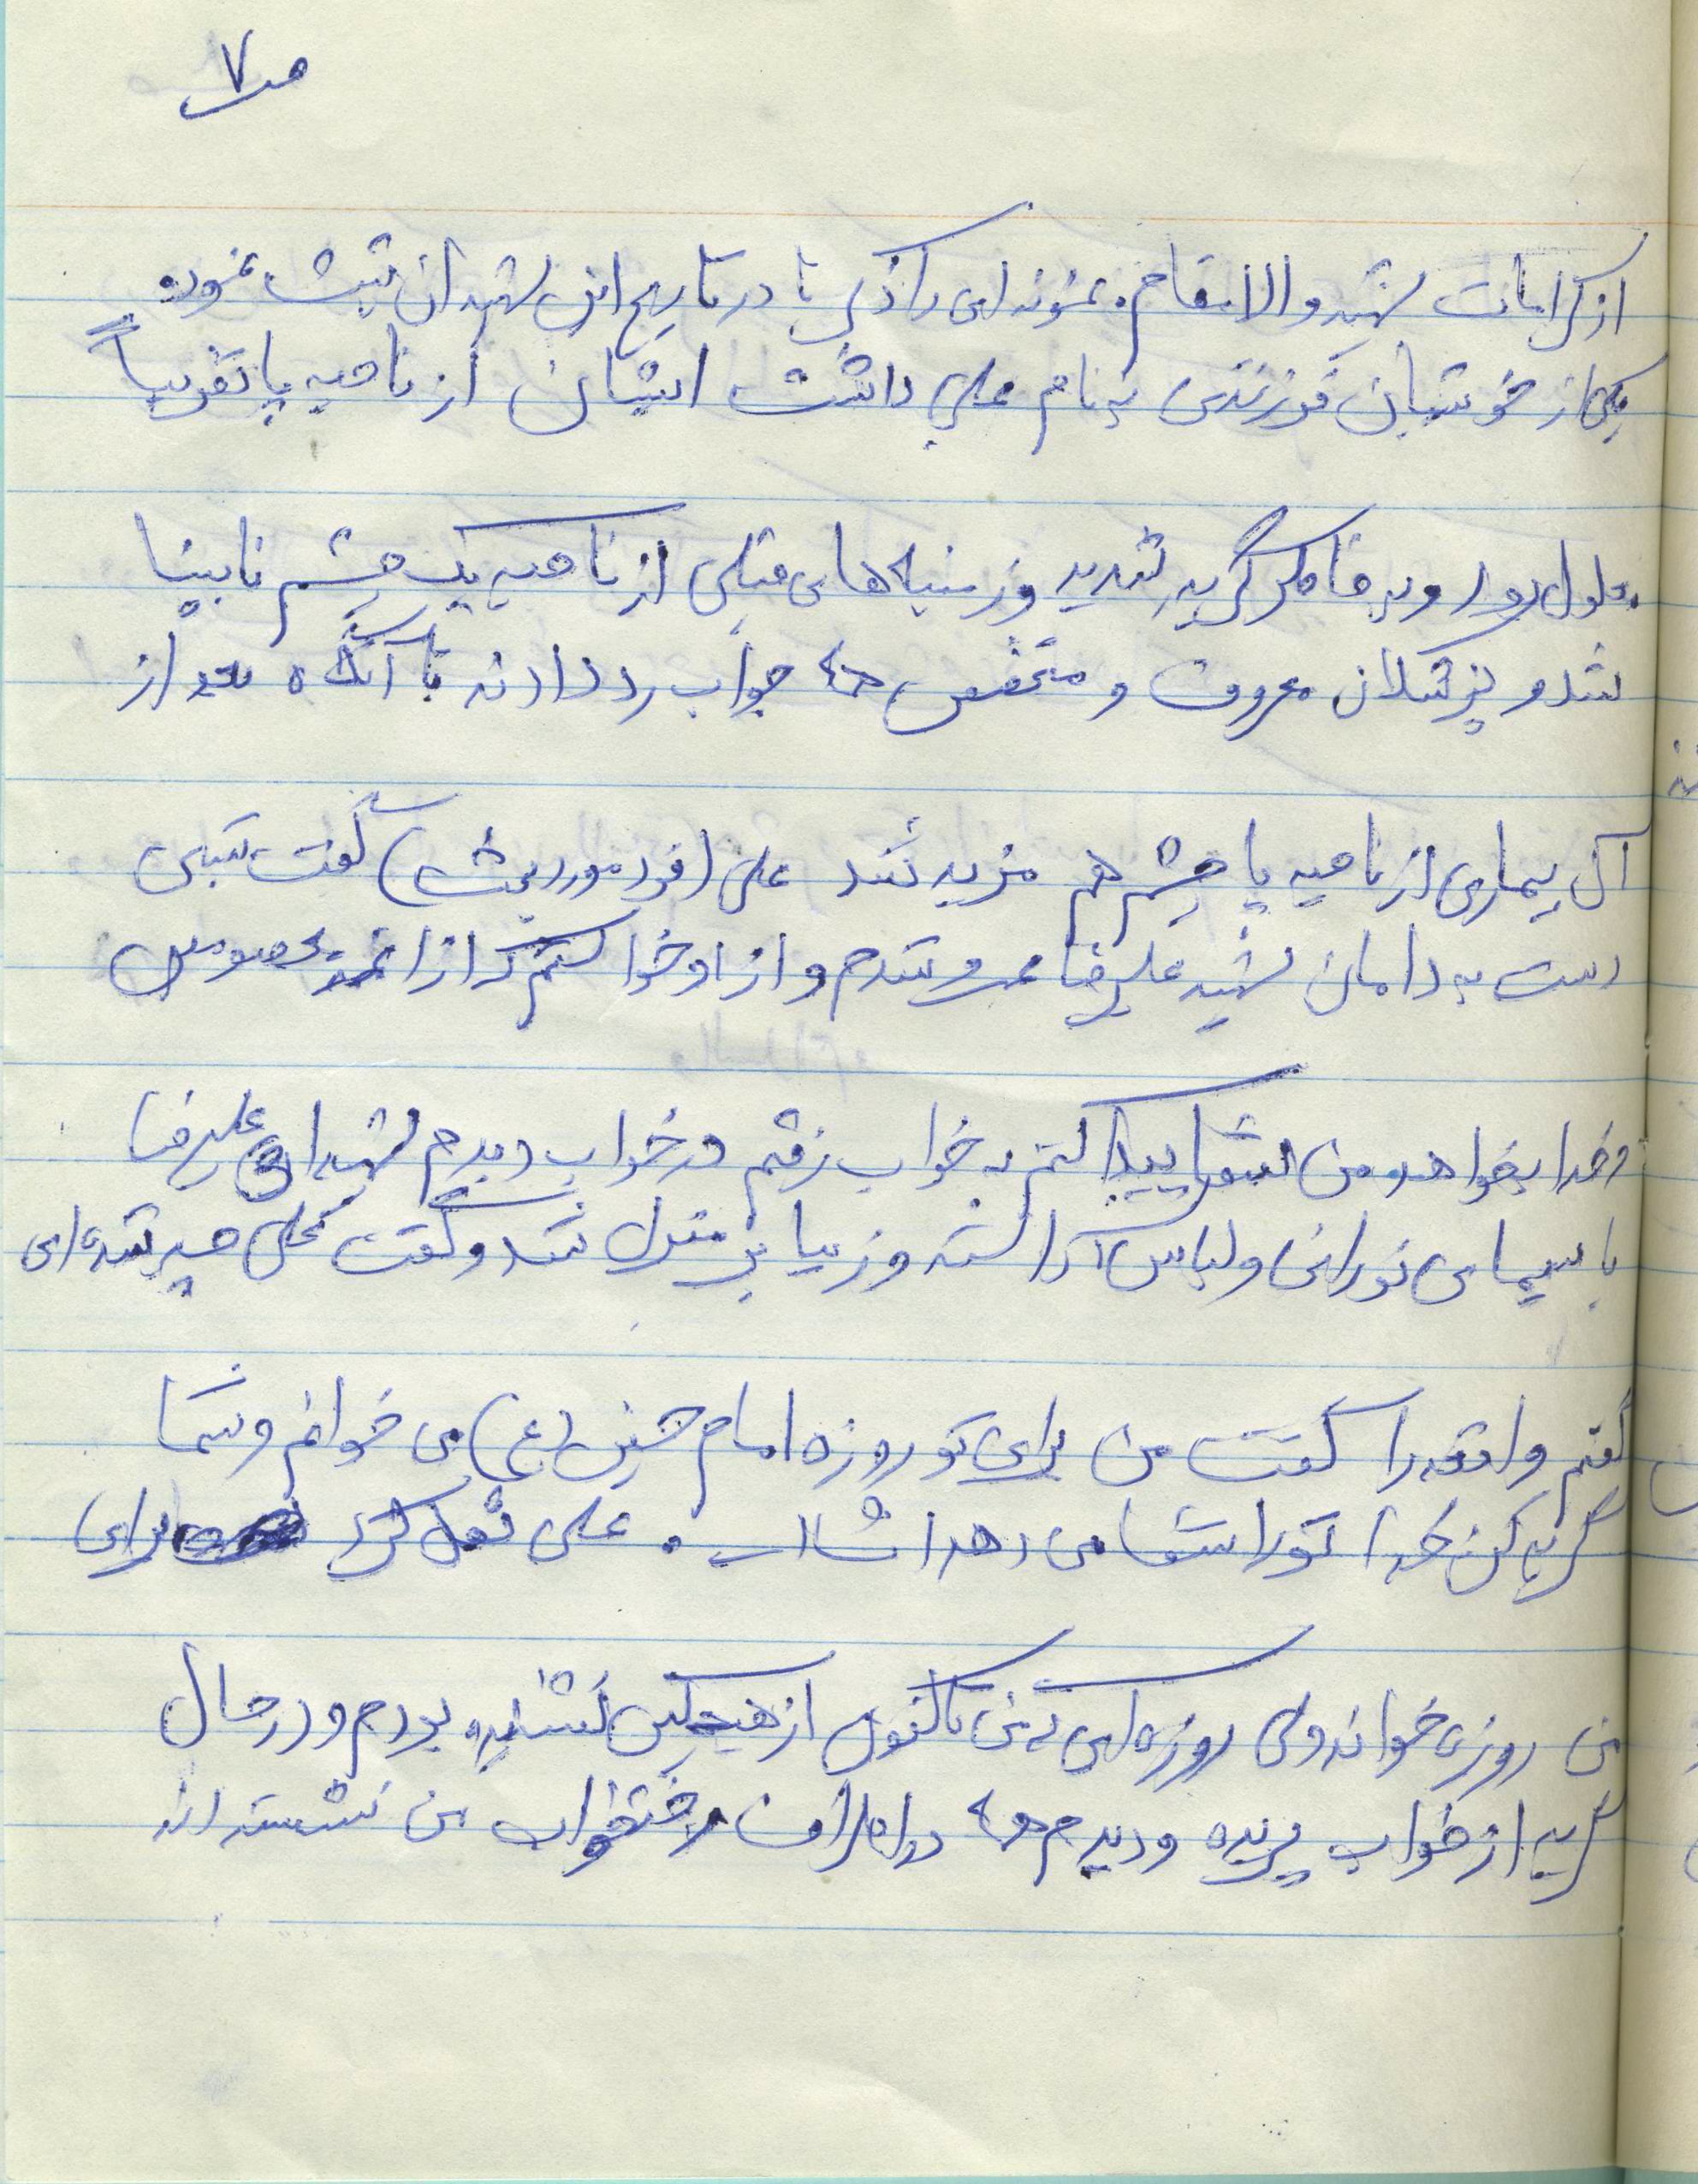 ص ۷
از کرامات شهید والامقام. نمونه‌ای را ذکر تا در تاریخ این شهیدان ثبت نموده
یکی از خویشان فرزندی به نام علی داشت ایشان از ناحیه پا تقریباً
معلول بود و به خاطر گریه شدید و زمینه‌های قبلی از ناحیه یک چشم نابینا
شد و پزشکان معروف و متخصص همه جواب رد دادند تا آنکه بعد از
آن بیماری از ناحیه پا چشم هم مزید شد علی (فرد مورد بحث) گفت شبی
دست به دامان شهید علیرضا شدم و از او خواستم که از ائمه بخصوص
و خدا بخواهد و من شفا پیدا کنم به خواب رفتم در خواب دیدم شهید علیرضا
با سیمای نورانی و لباس آراسته و زیبا بر منزل شد و گفت علی چه شده‌ای
گفتم واقعه را گفت من برای تو روزه امام حسین (ع) می خوانم و شما
گریه کن خدا تو را شفا می دهد انشاا... . علی نقل کرد برای
من روزه خواند ولی روزه‌ای که من تاکنون از هیچکس نشنیده بودم و در حال
گریه از خواب پریده و دیدم همه در اطراف رختخواب من نشسته اند